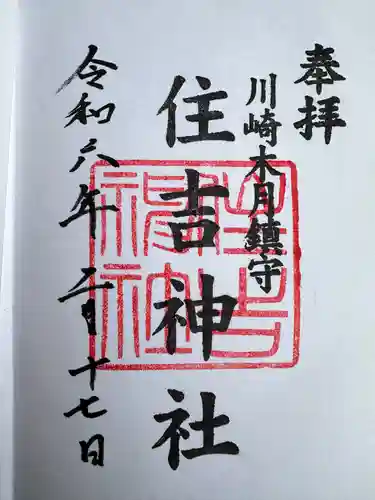 奉拝
川崎木月鎮守
住吉神社
令和六年二月十七日
住吉
神社